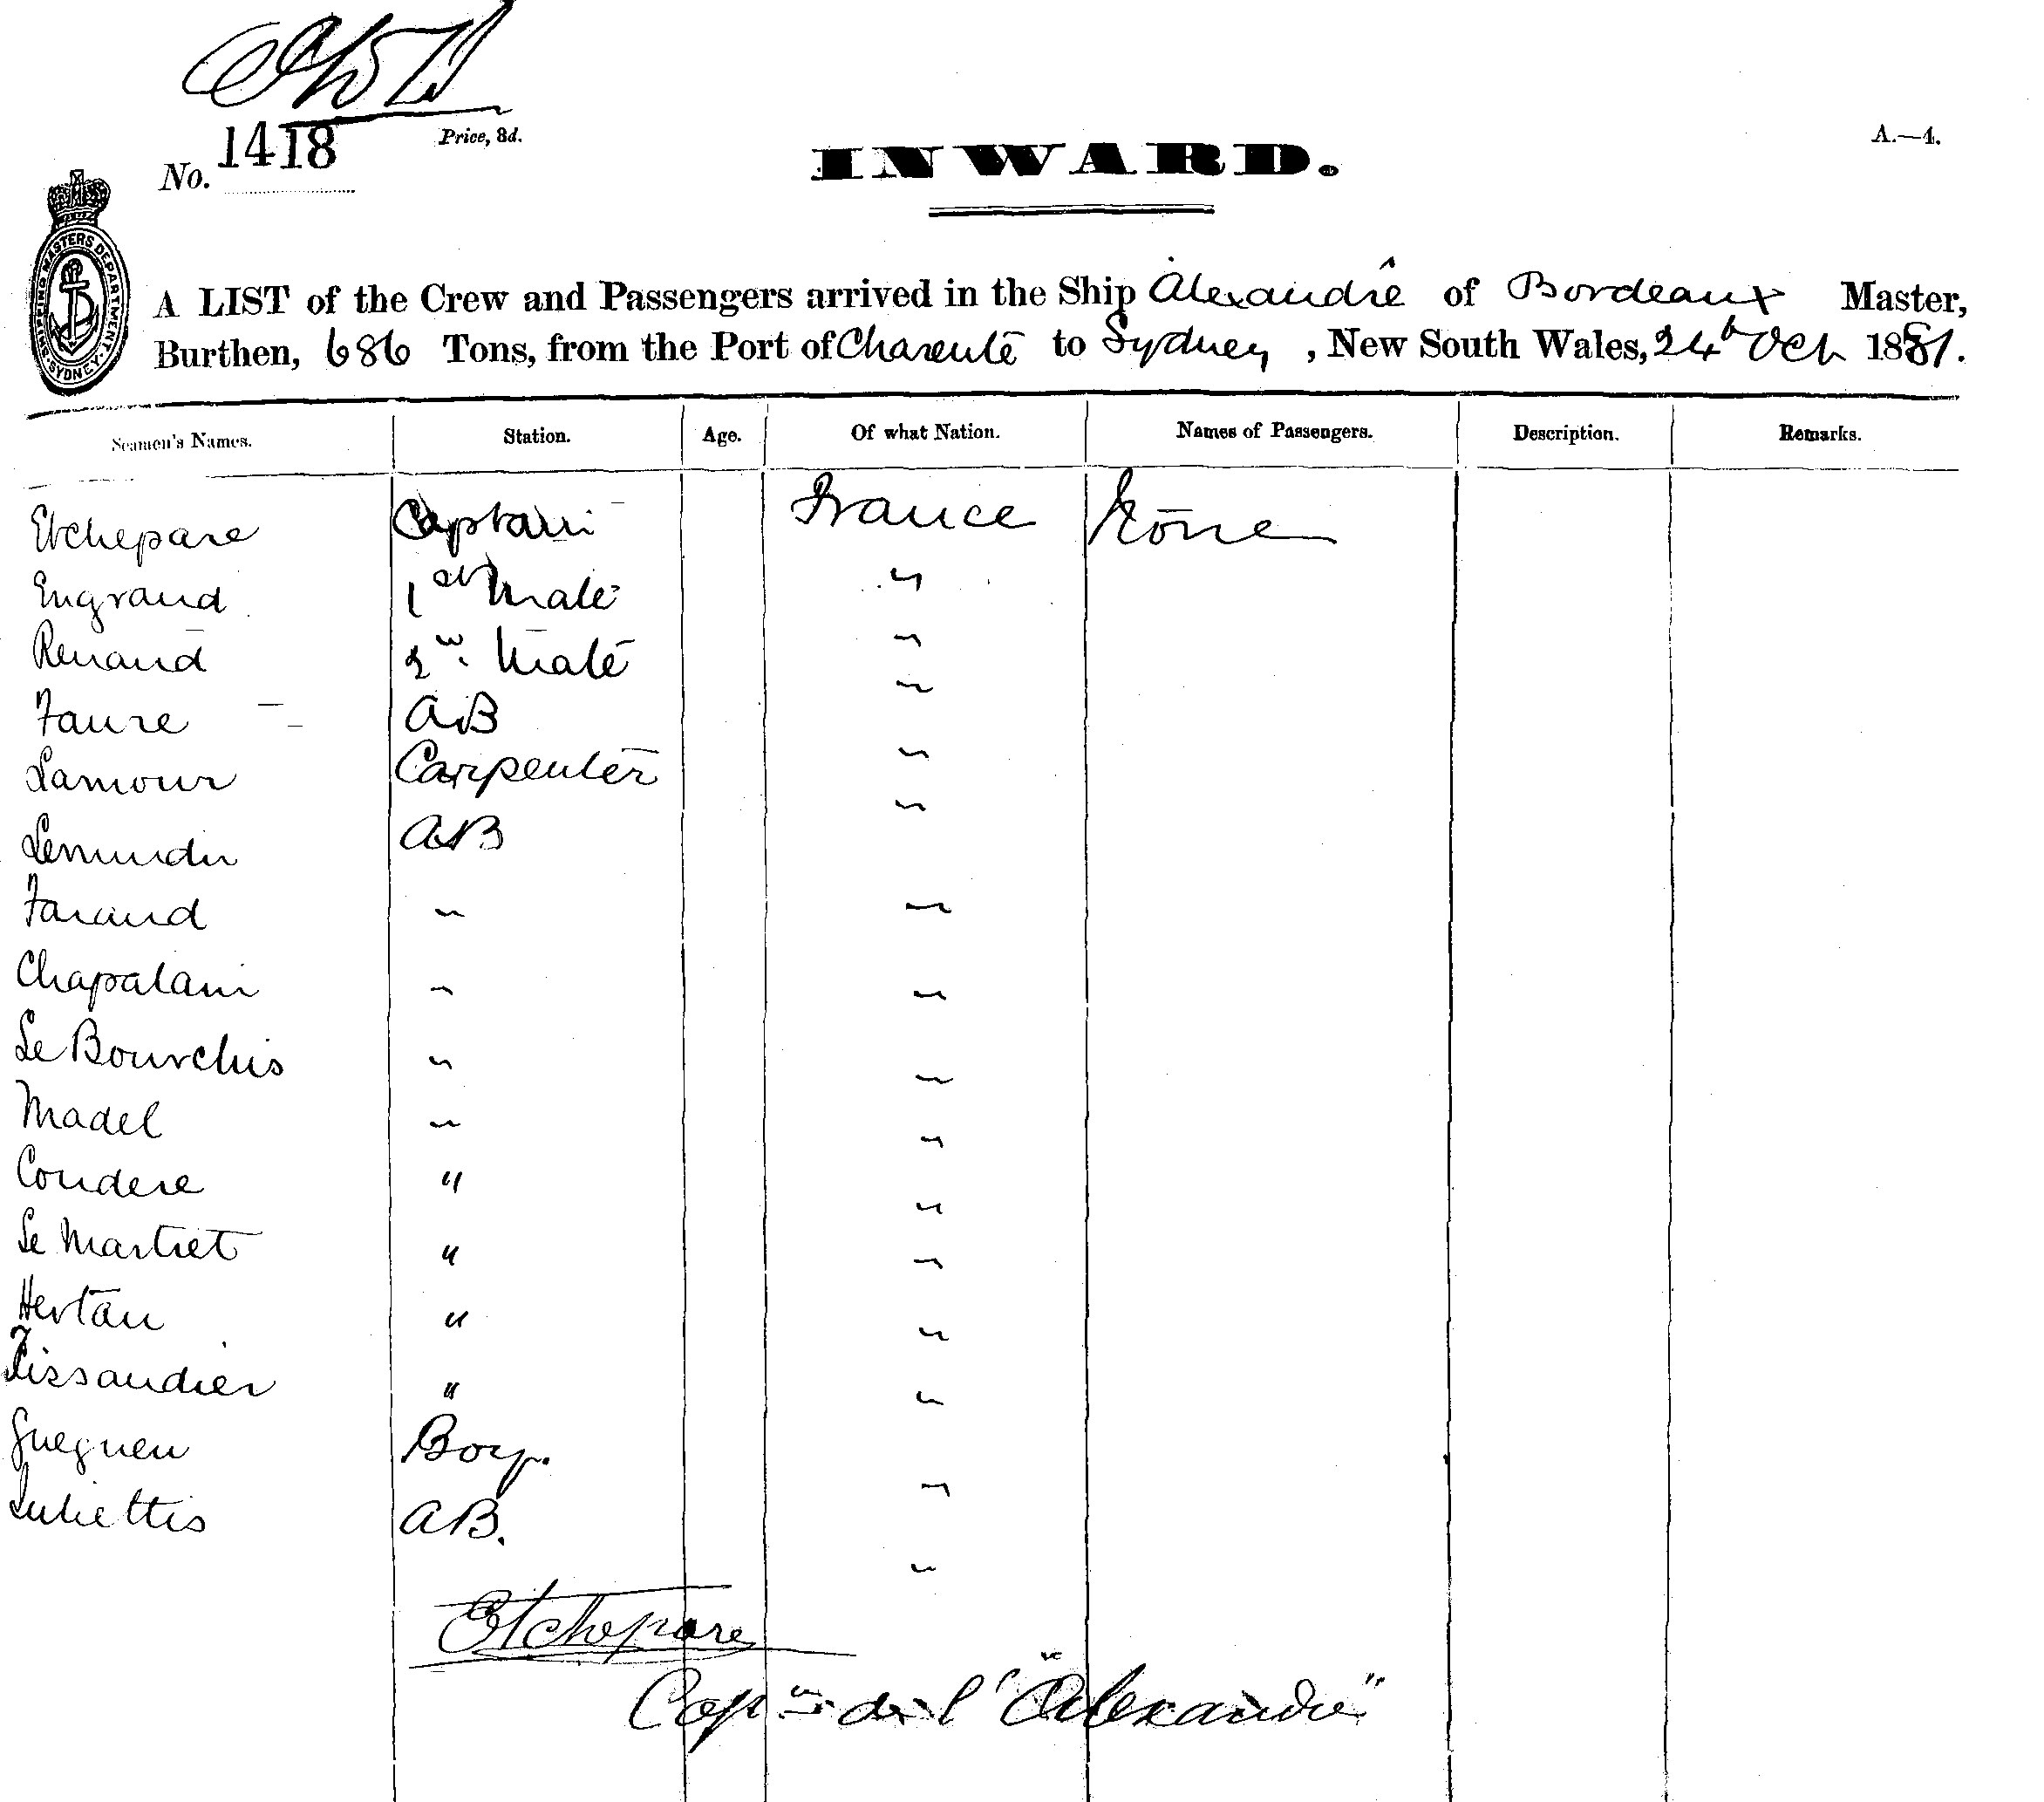 No. 1418 Price, 8d.
INWARD.
A.—4.
SHIPPING MASTERS DEPARTMENT. SYDNEY.
A LIST of the Crew and Passengers arrived in the Ship Alexandre of Bordeaux Master,
Burthen, 686 Tons, from the Port of Charente to Sydney, New South Wales, 24th Oct 1881.
Seamen's Names. Station. Age. Of what Nation. Names of Passengers. Description. Remarks.
Etchepare Captain France None
Engrand 1st Mate "
Renaud 2nd Mate "
Faure AB "
Lamour Carpenter "
AB "
Faraud " "
Chapalain " "
Le Bourchis " "
Madel " "
Coudere " "
Le Martret " "
Hertau " "
Tissandier " "
Gueguen Boy. "
AB. "
Etchepare
Capne de l'"Alexandre"